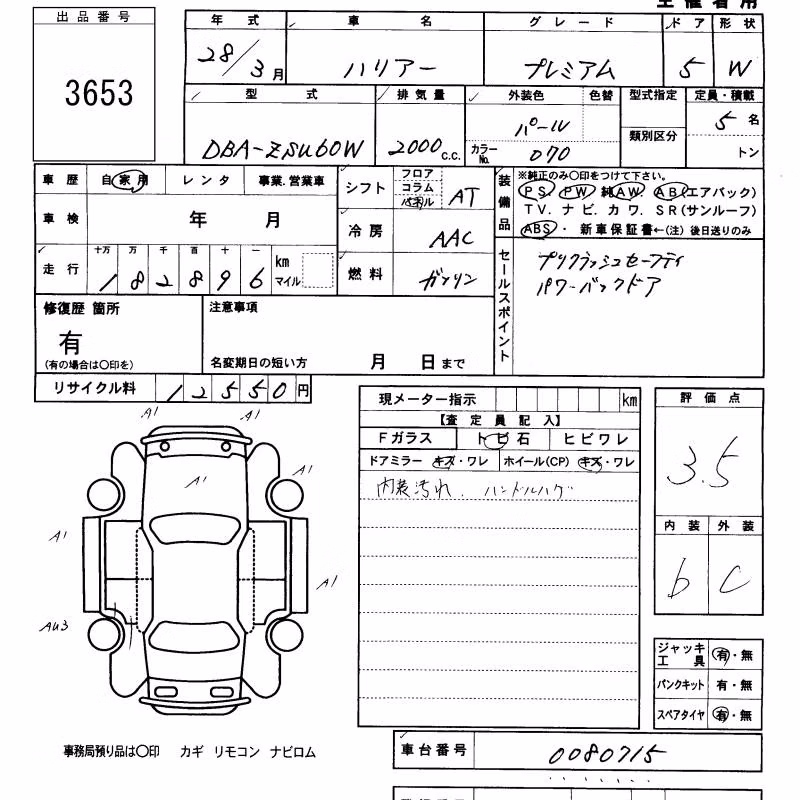 主催者用
出品番号
3653
年式 車名 グレード ドア 形状
28/3月 ハリアー プレミアム 5 W
型式 排気量 外装色 色替 型式指定 定員・積載
DBA-ZSU60W 2000 c.c. パール 5名
カラーNo. 070 類別区分 トン
車歴 自家用 レンタ 事業.営業車
車検 年 月
走行 十万 万 千 百 十 一
182896 km マイル
シフト フロア コラム パネル AT
冷房 AAC
燃料 ガソリン
装備品
※純正のみ〇印をつけて下さい。
PS. PW 純AW. AB(エアバック)
TV. ナビ. カワ. SR(サンルーフ)
ABS・新車保証書←(注)後日送りのみ
セールスポイント
プリクラッシュセーフティ
パワーバックドア
修復歴 箇所
有
(有の場合は〇印を)
注意事項
名変期日の短い方 月 日まで
リサイクル料 12550円
現メーター指示 km
【査定員記入】
Fガラス トビ石 ヒビワレ
ドアミラー キズ・ワレ ホイール(CP) キズ・ワレ
内装汚れ. ハンドルハゲ
評価点
3.5
内装 外装
b C
A1 A1
A1
A1
A1
AU3
ジャッキ工具 有・無
パンクキット 有・無
スペアタイヤ 有・無
事務局預り品は〇印 カギ リモコン ナビロム
車台番号 0080715